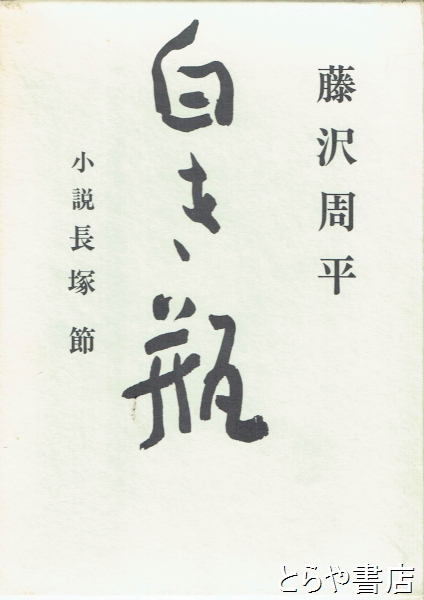 藤沢周平
白き瓶
小説長塚 節
とらや書店